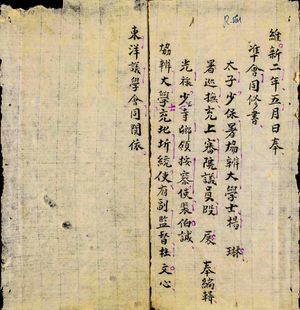 維新二年五月日奉
準會同修書
太子少保署協辦大學士楊 琳
署巡撫充上審院議員段 展 奉編輯
光祿少寺卿領按察使裴伯誠
協辦大學充北圻統使府副監督杜文心
東洋議學會同閱依